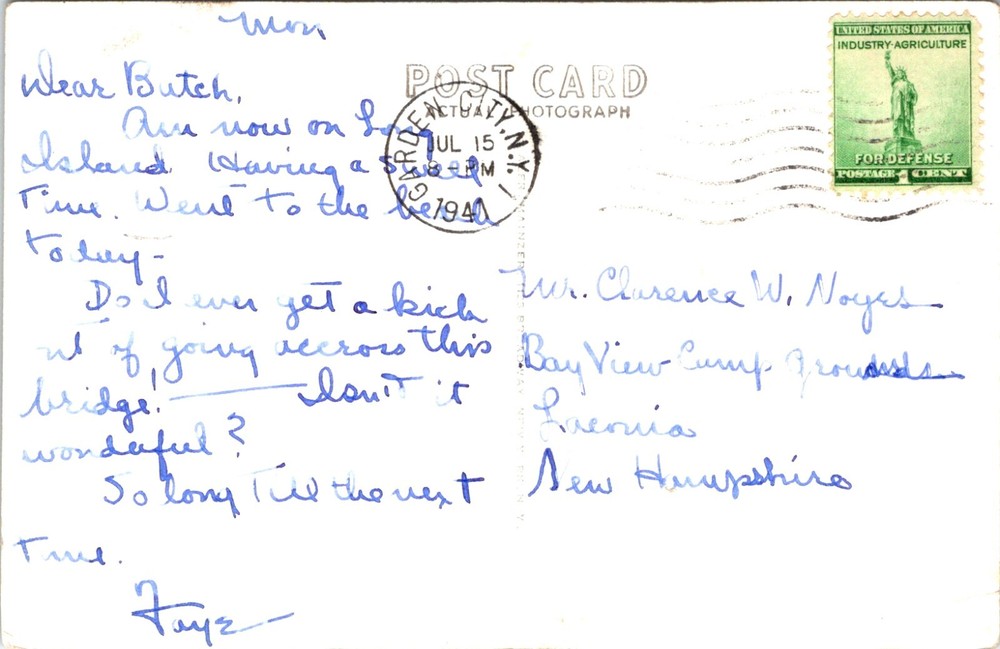 Mon
Dear Butch,
Am now on Long
Island. Having a swell
Time. Went to the beach
today -
Do I ever get a kick
out of going accross this
bridge! Isn't it
wonderful?
So long Till the next
Time.
Faye
POST CARD
ACTUAL PHOTOGRAPH
GARDEN CITY, N.Y.
JUL 15
8 - PM
1941
UNITED STATES OF AMERICA
INDUSTRY·AGRICULTURE
FOR DEFENSE
POSTAGE 1 CENT
Mr. Clarence W. Noyes
Bay View Camp grounds
Laconia
New Hampshire